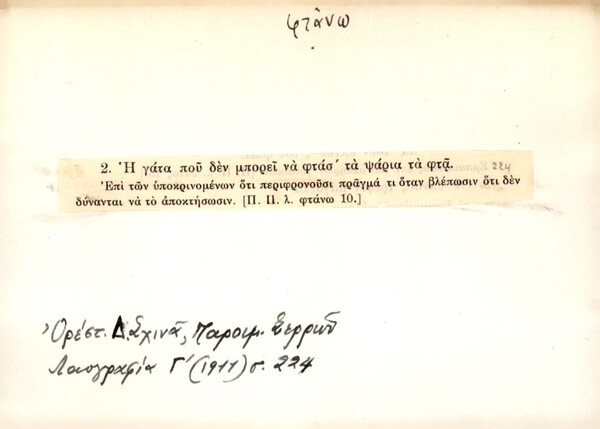 φτάνω
2. Ἡ γάτα ποῦ δὲν μπορεῖ νὰ φτάσ' τὰ ψάρια τὰ φτᾷ. 224
Ἐπὶ τῶν ὑποκρινομένων ὅτι περιφρονοῦσι πρᾶγμά τι ὅταν βλέπωσιν ὅτι δὲν
δύνανται νὰ τὸ ἀποκτήσωσιν. [Π. Π. λ. φτάνω 10.]
Ὀρέστ. Δ. Σχινᾶ, Παροιμ. Σερρῶν
Λαογραφία Γ' (1911) σ. 224